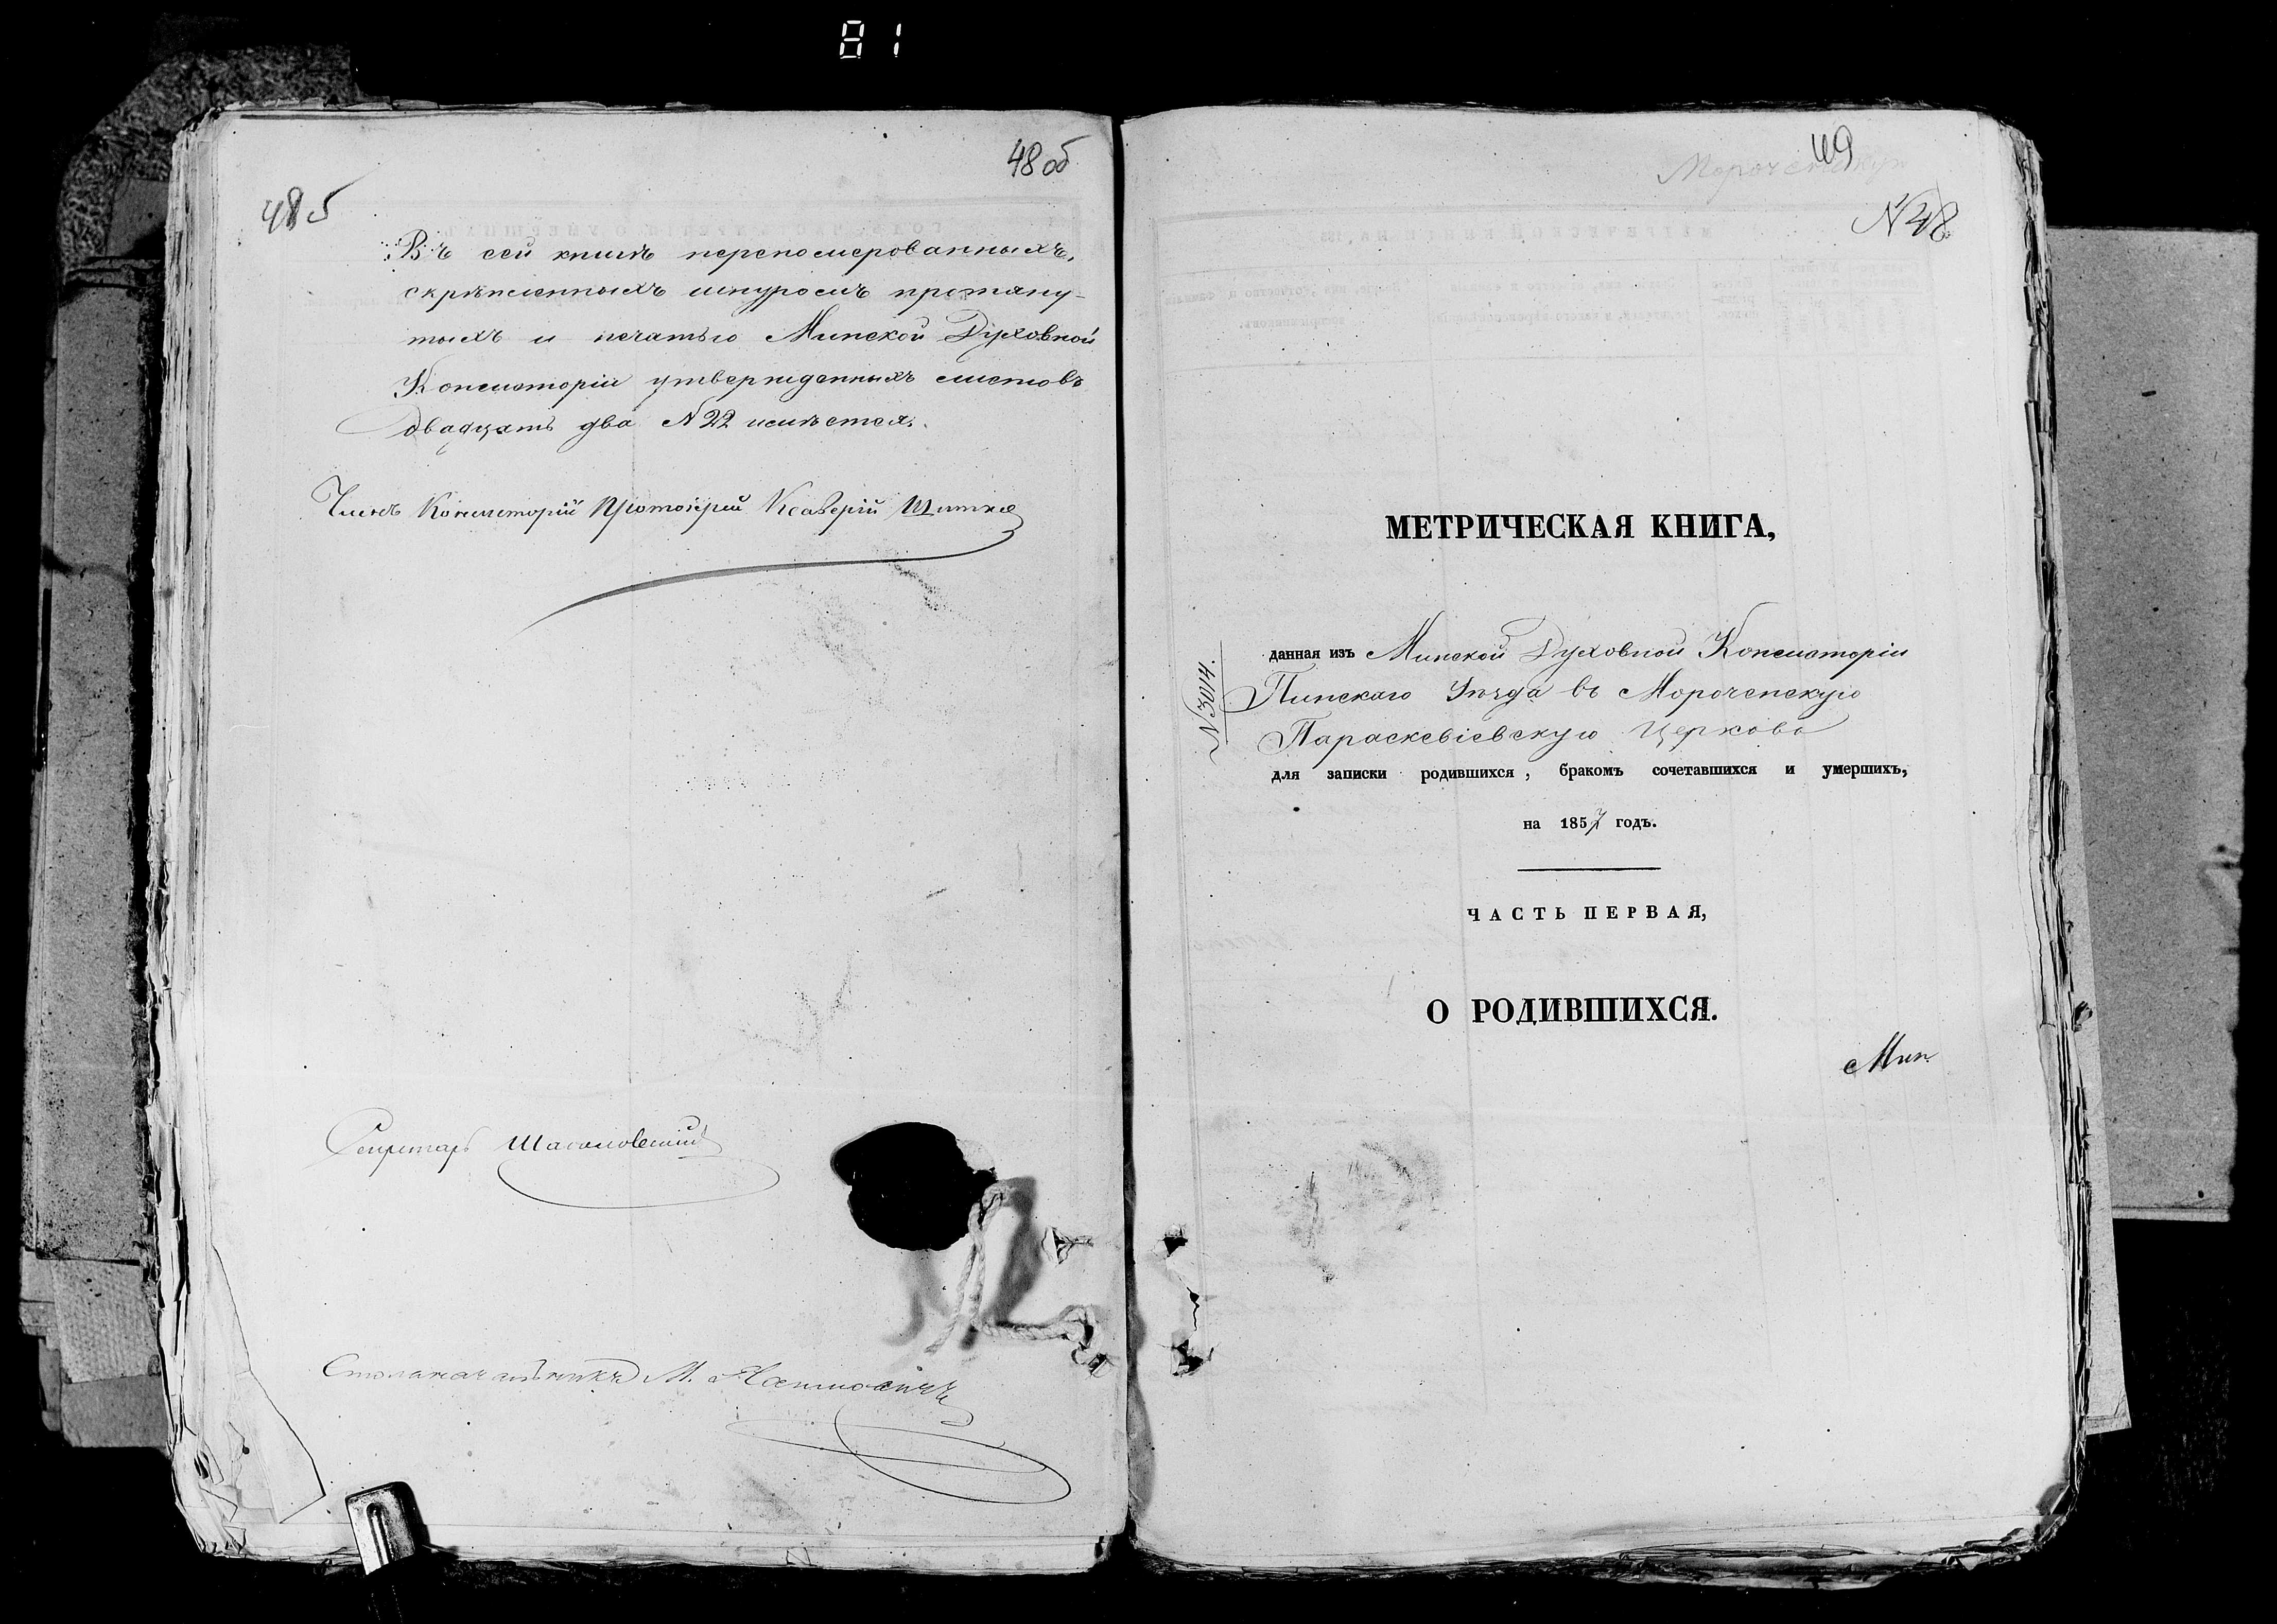 81
48 об
48 б
Въ сей книгѣ перепомерованныхъ,
скрѣпленныхъ шнуромъ протяну-
тыхъ и печатью Минской Духовной
Консисторіи утвержденныхъ листовъ
двадцать два N 22 имѣется.
Членъ Консисторіи Протоіерей Ксаверій
Секретарь
Столоначальникъ М.
49
N 48
МЕТРИЧЕСКАЯ КНИГА,
N 3014.
данная изъ Минской Духовной Консисторіи
Пинскаго Уѣзда въ Мороченскую
Параскевіевскую Церковь
для записки родившихся, бракомъ сочетавшихся и умершихъ,
на 1857 годъ.
ЧАСТЬ ПЕРВАЯ,
О РОДИВШИХСЯ.
Мин